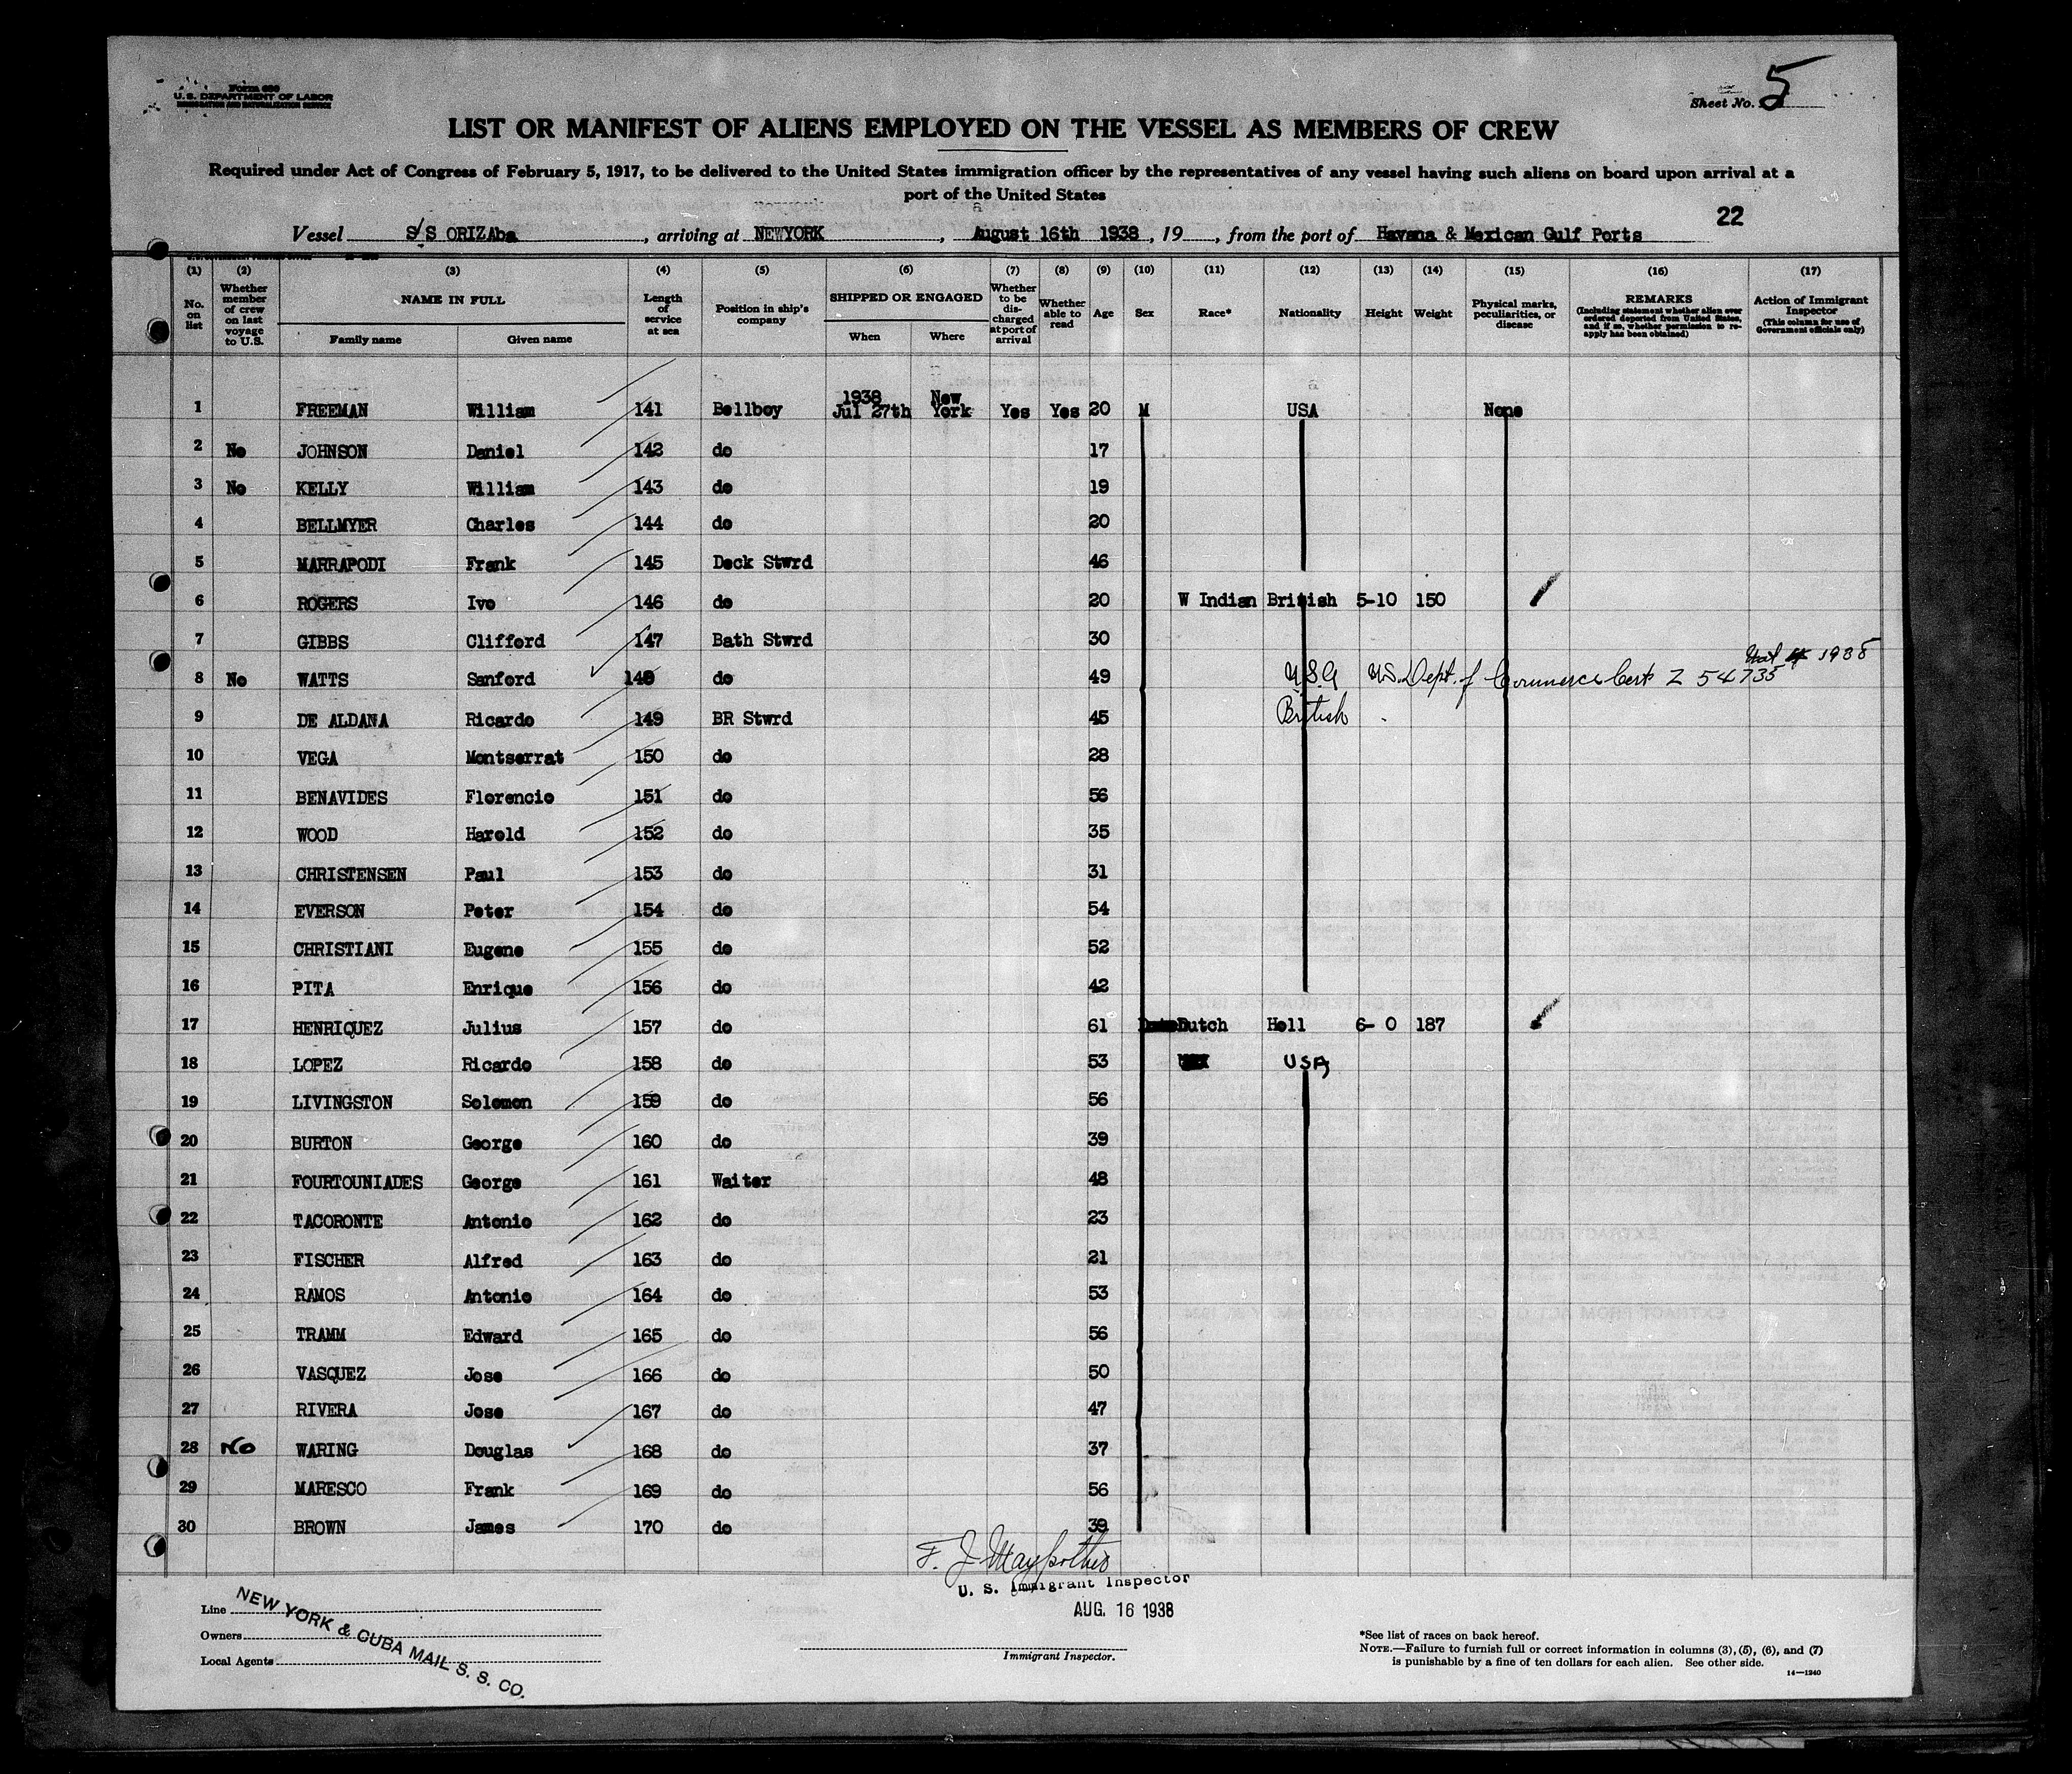 Form 680
U. S. DEPARTMENT OF LABOR
IMMIGRATION AND NATURALIZATION SERVICE
Sheet No. 5
LIST OR MANIFEST OF ALIENS EMPLOYED ON THE VESSEL AS MEMBERS OF CREW
Required under Act of Congress of February 5, 1917, to be delivered to the United States immigration officer by the representatives of any vessel having such aliens on board upon arrival at a
port of the United States
22
Vessel S/S ORIZAba, arriving at NEWYORK, August 16th 1938, 19, from the port of Havana & Mexican Gulf Ports
(1) (2) (3) (4) (5) (6) (7) (8) (9) (10) (11) (12) (13) (14) (15) (16) (17)
No. on list
Whether member of crew on last voyage to U.S.
NAME IN FULL
Family name
Given name
Length of service at sea
Position in ship's company
SHIPPED OR ENGAGED
When
Where
Whether to be discharged at port of arrival
Whether able to read
Age
Sex
Race*
Nationality
Height
Weight
Physical marks, peculiarities, or disease
REMARKS
(Including statement whether alien ever ordered deported from United States, and if so, whether permission to reapply has been obtained)
Action of Immigrant Inspector
(This column for use of Government officials only)
1 FREEMAN William 141 Bellboy 1938 Jul 27th New York Yes Yes 20 M USA None
2 No JOHNSON Daniel 142 do 17
3 No KELLY William 143 do 19
4 BELLMYER Charles 144 do 20
5 MARRAPODI Frank 145 Deck Stwrd 46
6 ROGERS Ivo 146 do 20 W Indian British 5-10 150
7 GIBBS Clifford 147 Bath Stwrd 30
8 No WATTS Sanford 148 do 49 U.S.A U.S. Dept. of Commerce Cert Z 54735 1938
9 DE ALDANA Ricardo 149 BR Stwrd 45 British
10 VEGA Montserrat 150 do 28
11 BENAVIDES Florencio 151 do 56
12 WOOD Harold 152 do 35
13 CHRISTENSEN Paul 153 do 31
14 EVERSON Peter 154 do 54
15 CHRISTIANI Eugene 155 do 52
16 PITA Enrique 156 do 42
17 HENRIQUEZ Julius 157 do 61 Dutch Holl 6- 0 187
18 LOPEZ Ricardo 158 do 53 USA
19 LIVINGSTON Solomon 159 do 56
20 BURTON George 160 do 39
21 FOURTOUNIADES George 161 Waiter 48
22 TACORONTE Antonio 162 do 23
23 FISCHER Alfred 163 do 21
24 RAMOS Antonio 164 do 53
25 TRAMM Edward 165 do 56
26 VASQUEZ Jose 166 do 50
27 RIVERA Jose 167 do 47
28 No WARING Douglas 168 do 37
29 MARESCO Frank 169 do 56
30 BROWN James 170 do 39
F. J.
U. S. Immigrant Inspector
AUG. 16 1938
Line
Owners
Local Agents
NEW YORK & CUBA MAIL S. S. CO.
Immigrant Inspector.
*See list of races on back hereof.
NOTE.—Failure to furnish full or correct information in columns (3), (5), (6), and (7)
is punishable by a fine of ten dollars for each alien. See other side.
14—1240